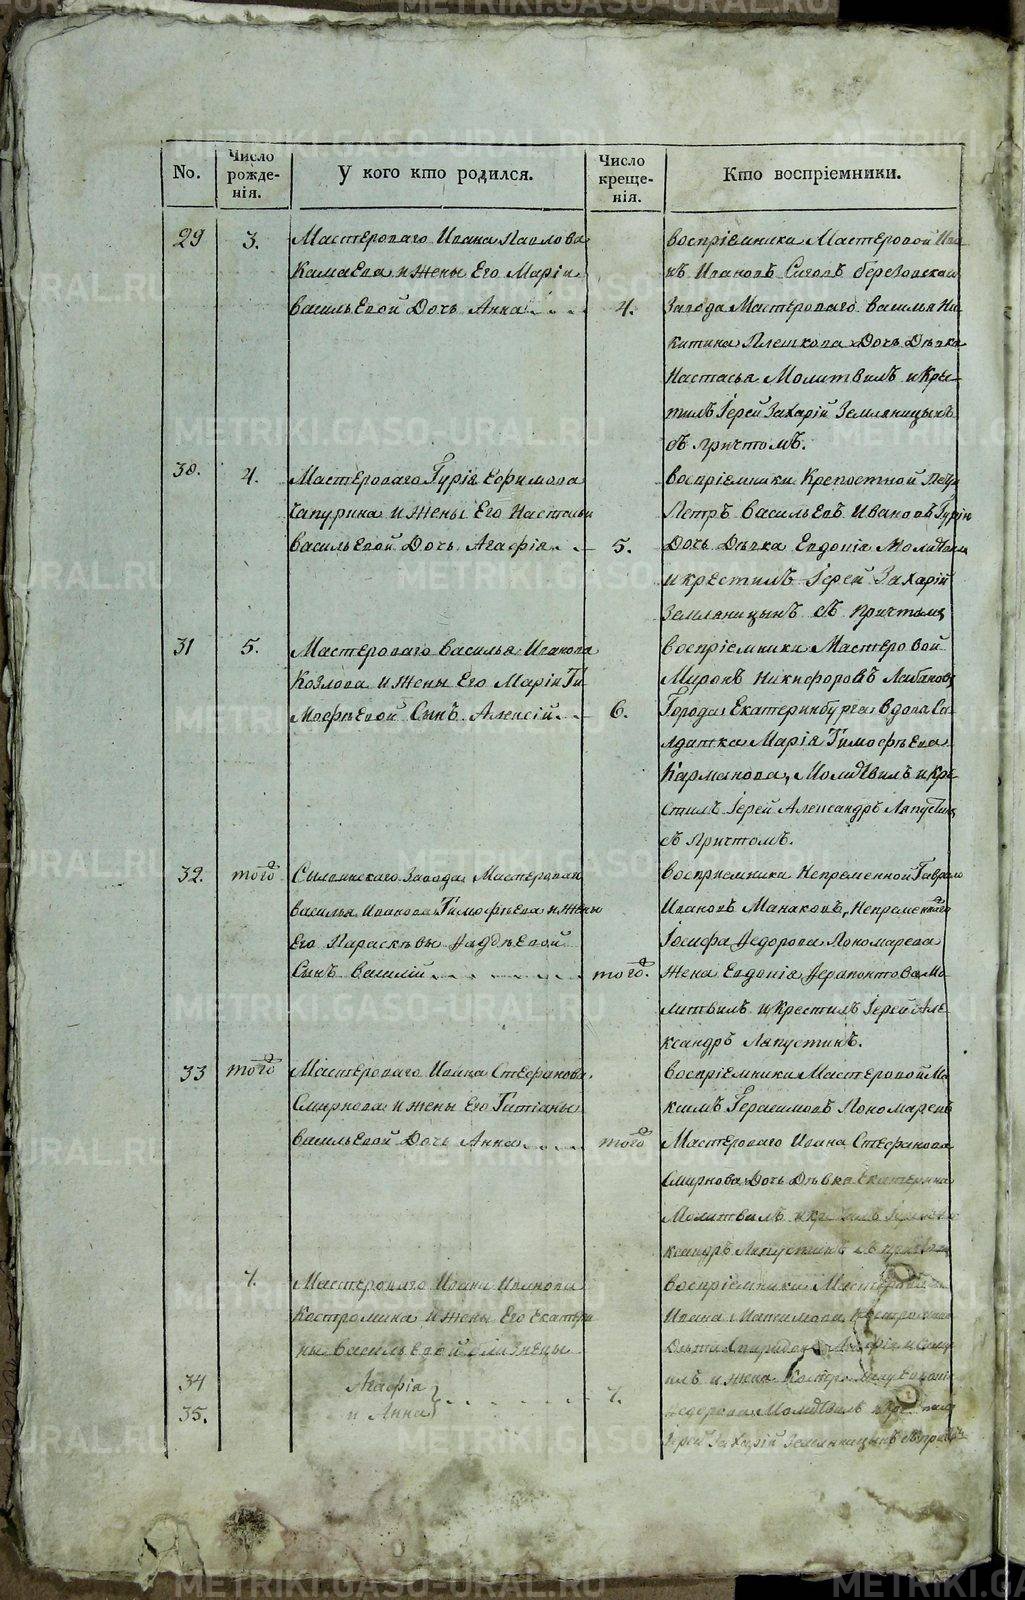 No.
Число рожденія.
У кого кто родился.
Число крещенія.
Кто воспріемники.
29
3.
Мастероваго Ивана Павлова
Камаева и жены Его Маріи
Васильевой Дочь Анна
4.
Воспріемники Мастеровой Ива
нъ Ивановъ березовскаго
Завода Мастероваго Василья Ни
китина Плешкова Дочь Дѣвка
Настасья Молитвилъ и Кре
тилъ Іерей Захарій Земляницынъ
съ Причтомъ.
30.
4.
Мастероваго Гурія Ефимова
Чапурина и жены Его Настасьи
Васильевой Дочь Агафія
5.
Воспріемники Крепостной
Петръ Васильевъ Ивановъ
Дочь Дѣвка Евдокія
и крестилъ Іерей Захарій
Земляницынъ съ Причтомъ
31
5.
Мастероваго Василья Иванова
Козлова и жены Его Маріи Ти
мофѣевой Сынъ Алексій
6.
Воспріемники Мастеровой
Миронъ Никифоровъ
Города Екатеринбурга Вдова Са
лдатка Марія Тимофѣева
Карманова, Молитвилъ и Кре
стилъ Іерей Александръ Ляпустинъ
съ Причтомъ.
32.
того
Сылвинскаго Завода Мастероваго
Василья Иванова Тимофѣева и жены
Его Параскѣвы Фаддѣевой
Сынъ Василій
того.
Воспріемники Непременной Гаврило
Ивановъ Манаковъ, Непременнаго
Іосифа Федорова Пономарева
Жена Евдокія Ферапонтова Мо
литвилъ и Крестилъ Іерей Але
ксандръ Ляпустинъ.
33
того
Мастероваго Ивана Стефанова
Смирнова и жены Его Татіаны
Васильевой Дочь Анна
того
Воспріемники Мастеровой Ма
ксимъ Герасимовъ Пономаревъ
Мастероваго Ивана Стефанова
Смирнова Дочь Дѣвка Екатерина
Молитвилъ и
ксандръ Ляпустинъ съ
7.
Мастероваго Ивана Иванова
Костромина и жены Его Екатери
ны Васильевой близнецы
34
Агафія
35.
и Анна
7.
Воспріемники
Ивана
и жена
Федорова Молитвилъ
Іерей Захарій Земляницынъ
METRIKI.GASO-URAL.RU